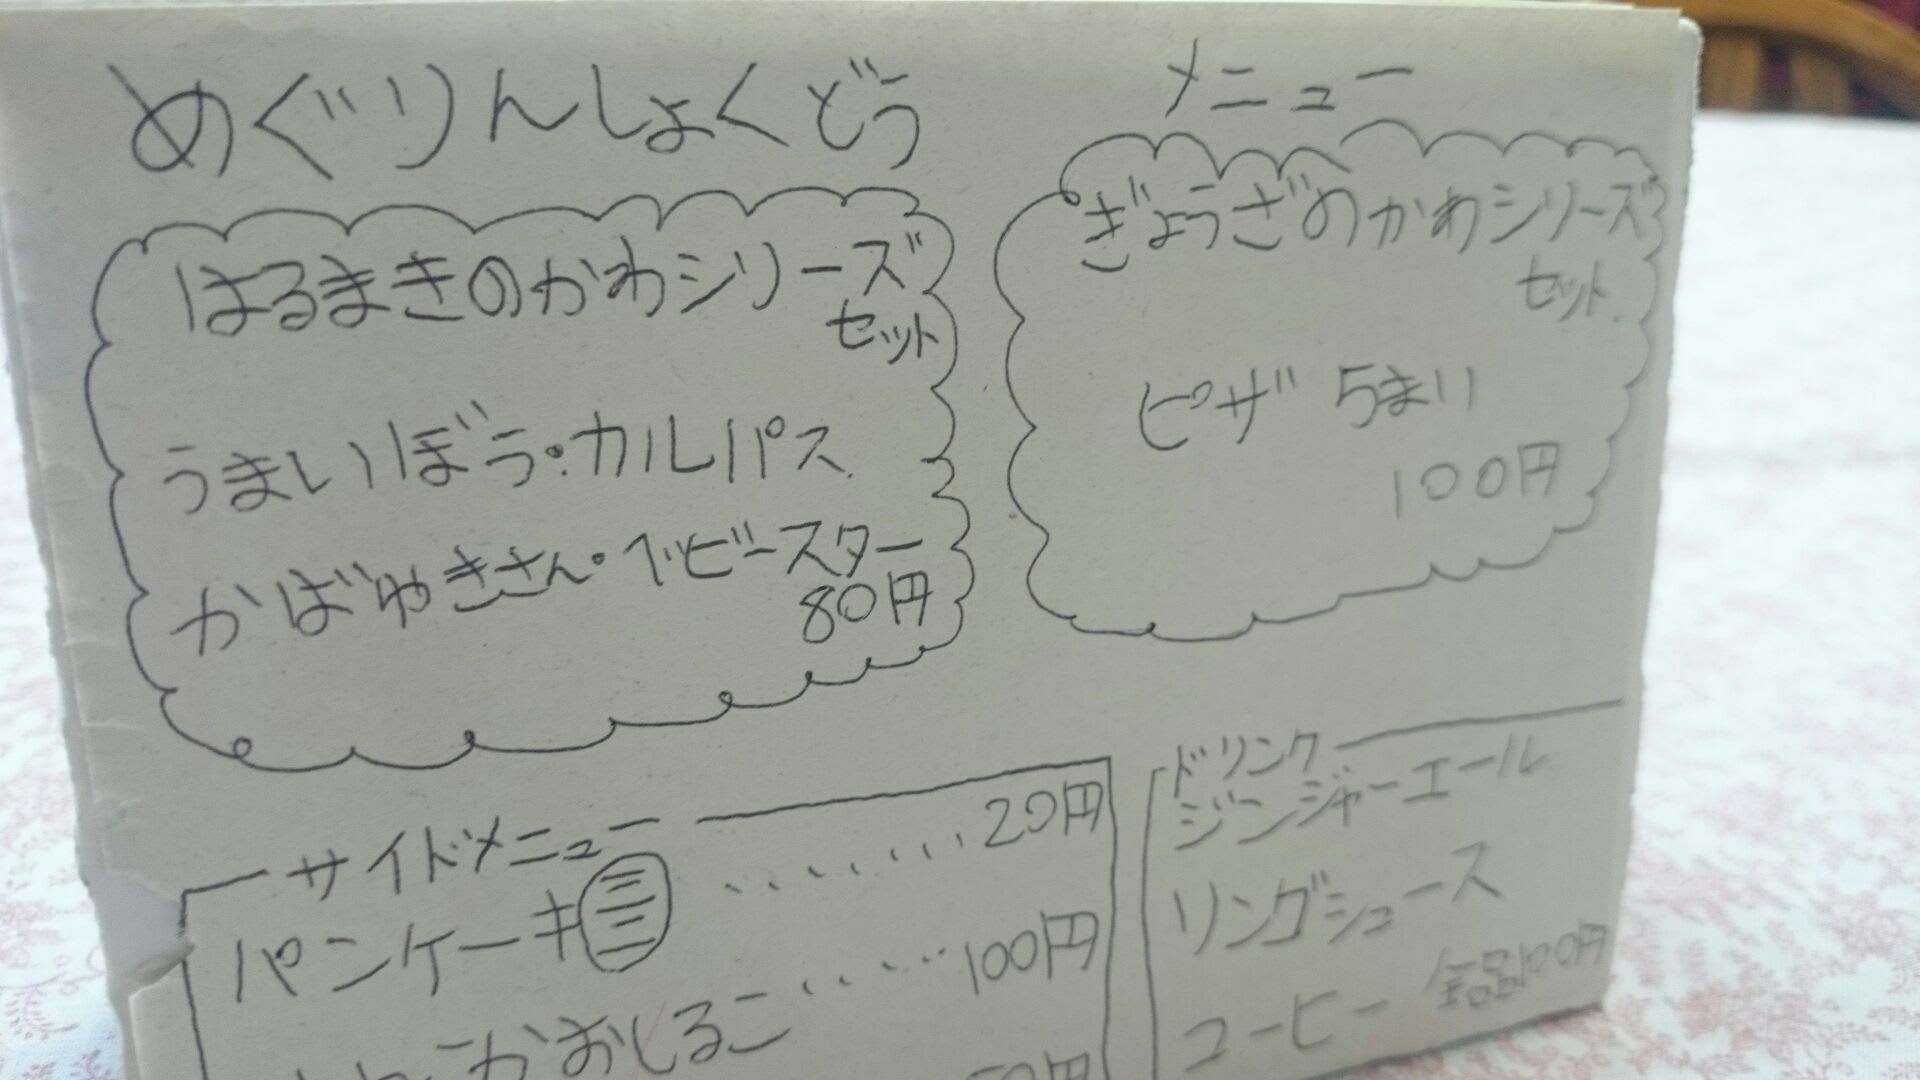 めぐりんしょくどう
メニュー
はるまきのかわシリーズ
セット
うまいぼう・カルパス
かばやきさん・ベビースター
80円
ぎょうざのかわシリーズ
セット
ピザ うまい
100円
サイドメニュー
パンケーキ ・・・・・・・20円
かおしるこ・・・・・100円
ドリンク
ジンジャーエール
リンゴジュース
コーヒー 全品100円